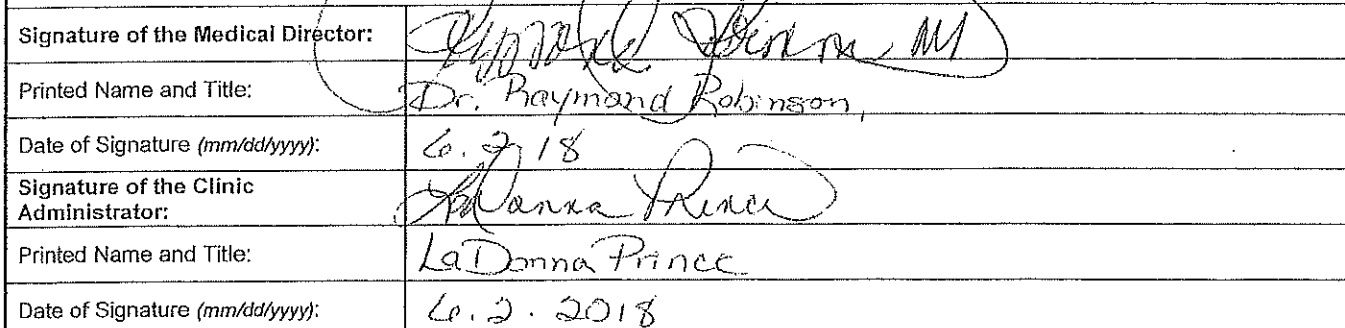 Signature of the Medical Director:
Printed Name and Title: Dr. Raymond Robinson,
Date of Signature (mm/dd/yyyy): 6.2.18
Signature of the Clinic
Administrator: LaDonna Prince
Printed Name and Title: LaDonna Prince
Date of Signature (mm/dd/yyyy): 6.2.2018